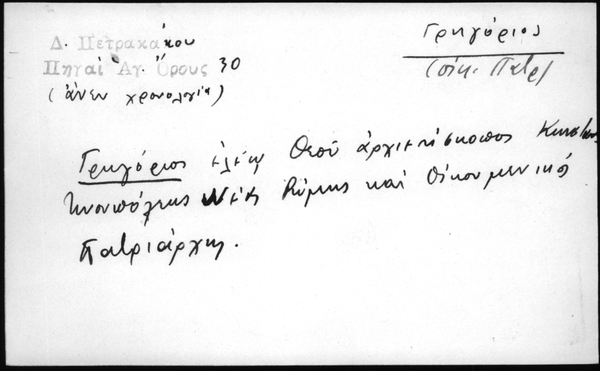 Δ. Πετρακάκου
Πηγαί Ἁγ. Ὄρους 30
(ἄνευ χρονολογία)
Γρηγόριος
(οἰκ. Πατρ)
Γρηγόριος ἐλέῳ Θεοῦ ἀρχιεπίσκοπος Κωνσταν
τινουπόλεως Νέας Ρώμης καί Οἰκουμενικός
Πατριάρχης.